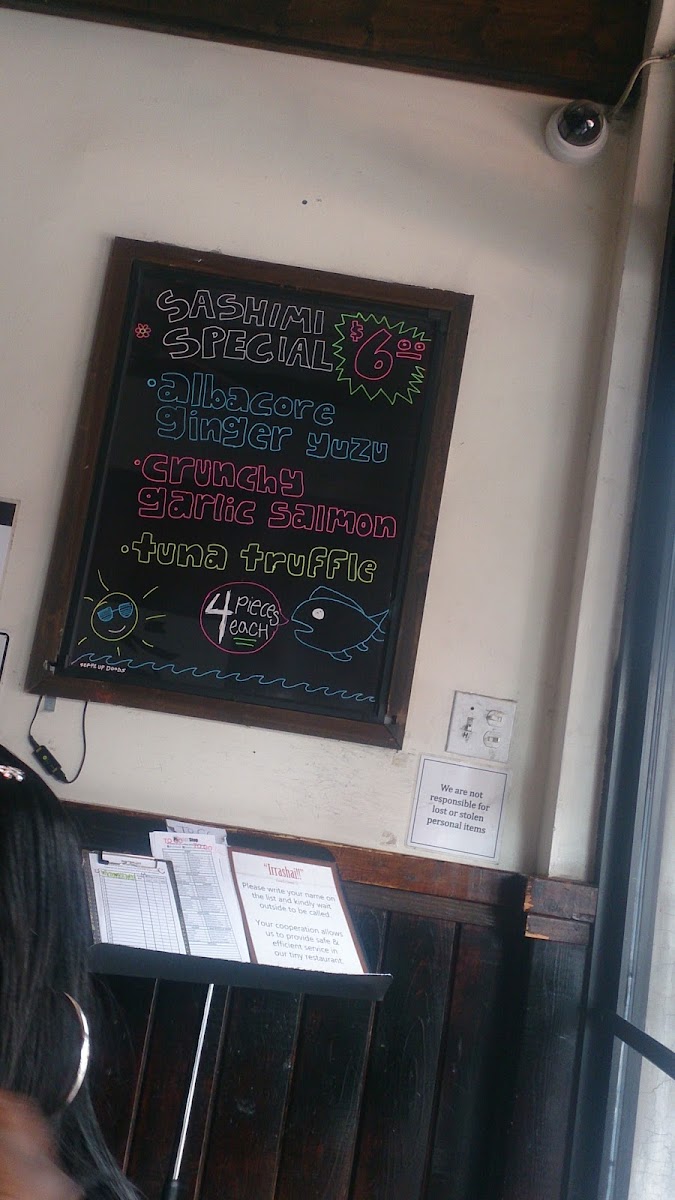 SASHIMI
SPECIAL
$6.00
•albacore
ginger yuzu
•crunchy
garlic salmon
•tuna truffle
4 pieces
each
We are not
responsible for
lost or stolen
personal items
"Irrashai!!"
Please write your name on
the list and kindly wait
outside to be called.
Your cooperation allows
us to provide safe &
efficient service in
our tiny restaurant.